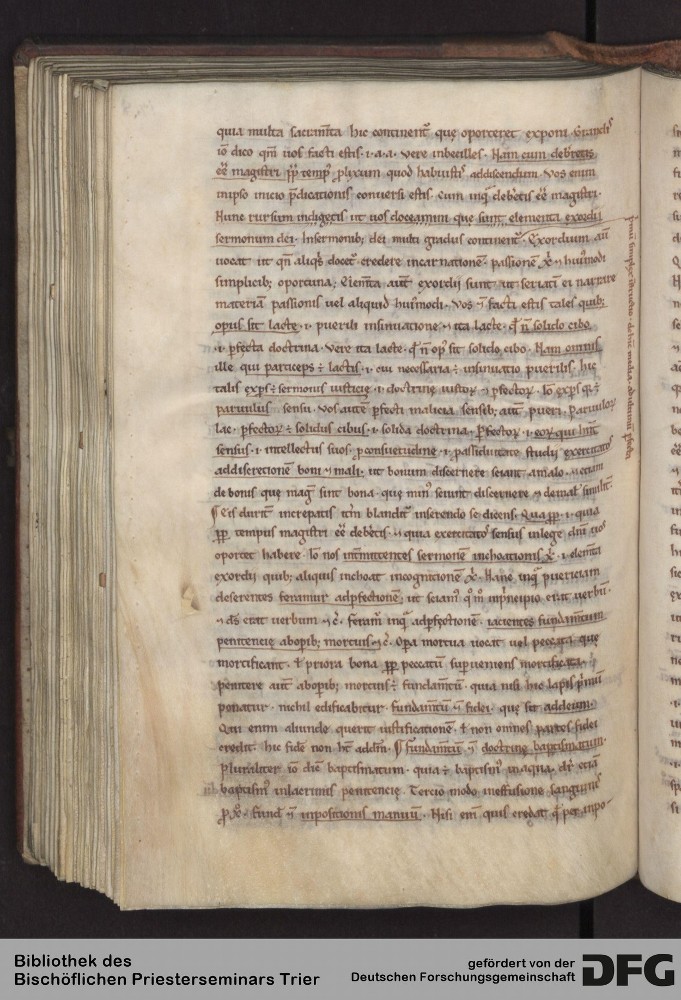 quia multa sacram̅ta hic continent᷑ que oporteret exponi.
io̅ dico qm̅ uos facti estis .i. a.a. vere inbecilles. Nam cum deberetis
ee̅ magistri pp̅ temp᷒ quod habuistis addiscendum. Vos enim
inipso inicio p̅dicationis conuersi estis. Cum inq̅ deberetis ee̅ magistri.
Nunc rursum indigetis ut uos doceamini que sunt elementa exordii
sermonum dei. Insermonib; dei multi gradus continent᷑. Exordium aut̅
uocat ut qn̅ aliqs̅ docet᷑ credere incarnatione̅. passione̅ xp̅i ⁊ hui᷒modi
simplicib; oportuna. Elem̅ta aut̅ exordii sunt ut seriati ei narrare
materiam passionis uel aliquid hui᷒modi. Vos facti estis tales quib;
opus sit lacte .i. puerili insinuatione ⁊ ita lacte. qd̅ n̅ solido cibo
.i. p̲fecta doctrina. Vere ita lacte. qd̅ n̅ op᷒ sit solido cibo. Nam omnis
ille qui particeps ÷ lactis .i. cui necessaria ÷ insinuatio puerilis. hic
talis exp̲s ÷ sermonis iusticie .i. doctrine iustoꝝ ⁊ p̲fectoꝝ. Io̅ exp̲s q̲ ÷
paruulus sensu. Vos aute̅ p̲fecti malicia sensib; aut̅ pueri. Paruuloꝝ
lac. p̲fectoꝝ ÷ solidus cibus .i. solida doctrina. P̲fectoꝝ .i. eoꝝ qui hn̅t
sensus .i. intellectus suos p̲ consuetudine .i. p̲ assiduitate studii exercitatos
addiscretionem boni ⁊ mali. ut bonum discernere sciant amalo. ⁊ etiam
de bonis que mag᷒ sint bona. que min᷒ sciunt discernere ⁊ demal᷒ similit᷑.
¶ Eis durit᷑ increpatis itm̅ blandit᷑ inserendo se dicens. Qua pp̲ .i. quia
pp̲ tempus magistri ee̅ deberetis. ⁊ quia exercitatos sensus inlege dni̅ uos
oportet habere. Io̅ nos int̅mittentes sermone̅ inchoationis xp̅i .i. elem̅ta
exordii quib; aliquis inchoat incognitione̅ xp̅i. Hanc inq̅ puericiam
deserentes feramur adp̲fectione̅. ut sciam᷒ q̅m̅ inprincipio erat uerbu̅.
⁊ ds̅ erat uerbum ⁊c̅. feram᷑ inq̅ adp̲fectione̅. iacientes fundam̅tum
penitencie aboperib; mortuis ⁊c̅. Opera mortua uocat uel peccata que
mortificant. ł priora bona pp̲ peccatu̅ sup̲ueniens mortificata.
penitere aut̅ aboperib; mortuis ÷ fundam̅tu̅. quia nisi hic lapis p̅mu̅
ponatur. nichil edificabitur. fundam̅tu̅ fidei. que sit addeum.
Qui enim aliunde querit iustificatione̅. ł non omnes partes fidei
credit. hic fide̅ non ht̅ addm̅. ¶ fundam̅tu̅ doctrine baptismatum.
Pluraliter io̅ dic̅ baptismatum. quia ÷ baptism᷒ inaqua. dr̅ etia̅
baptism᷒ inlacrimis penitencie. Tercio modo ineffusione sanguinis
p̲ xp̅o. fund̅ inpositionis manuu̅. Nisi eni̅ quis credat qd̅ per inpo-
Bibliothek des
Bischöflichen Priesterseminars Trier
gefördert von der
Deutschen Forschungsgemeinschaft
DFG